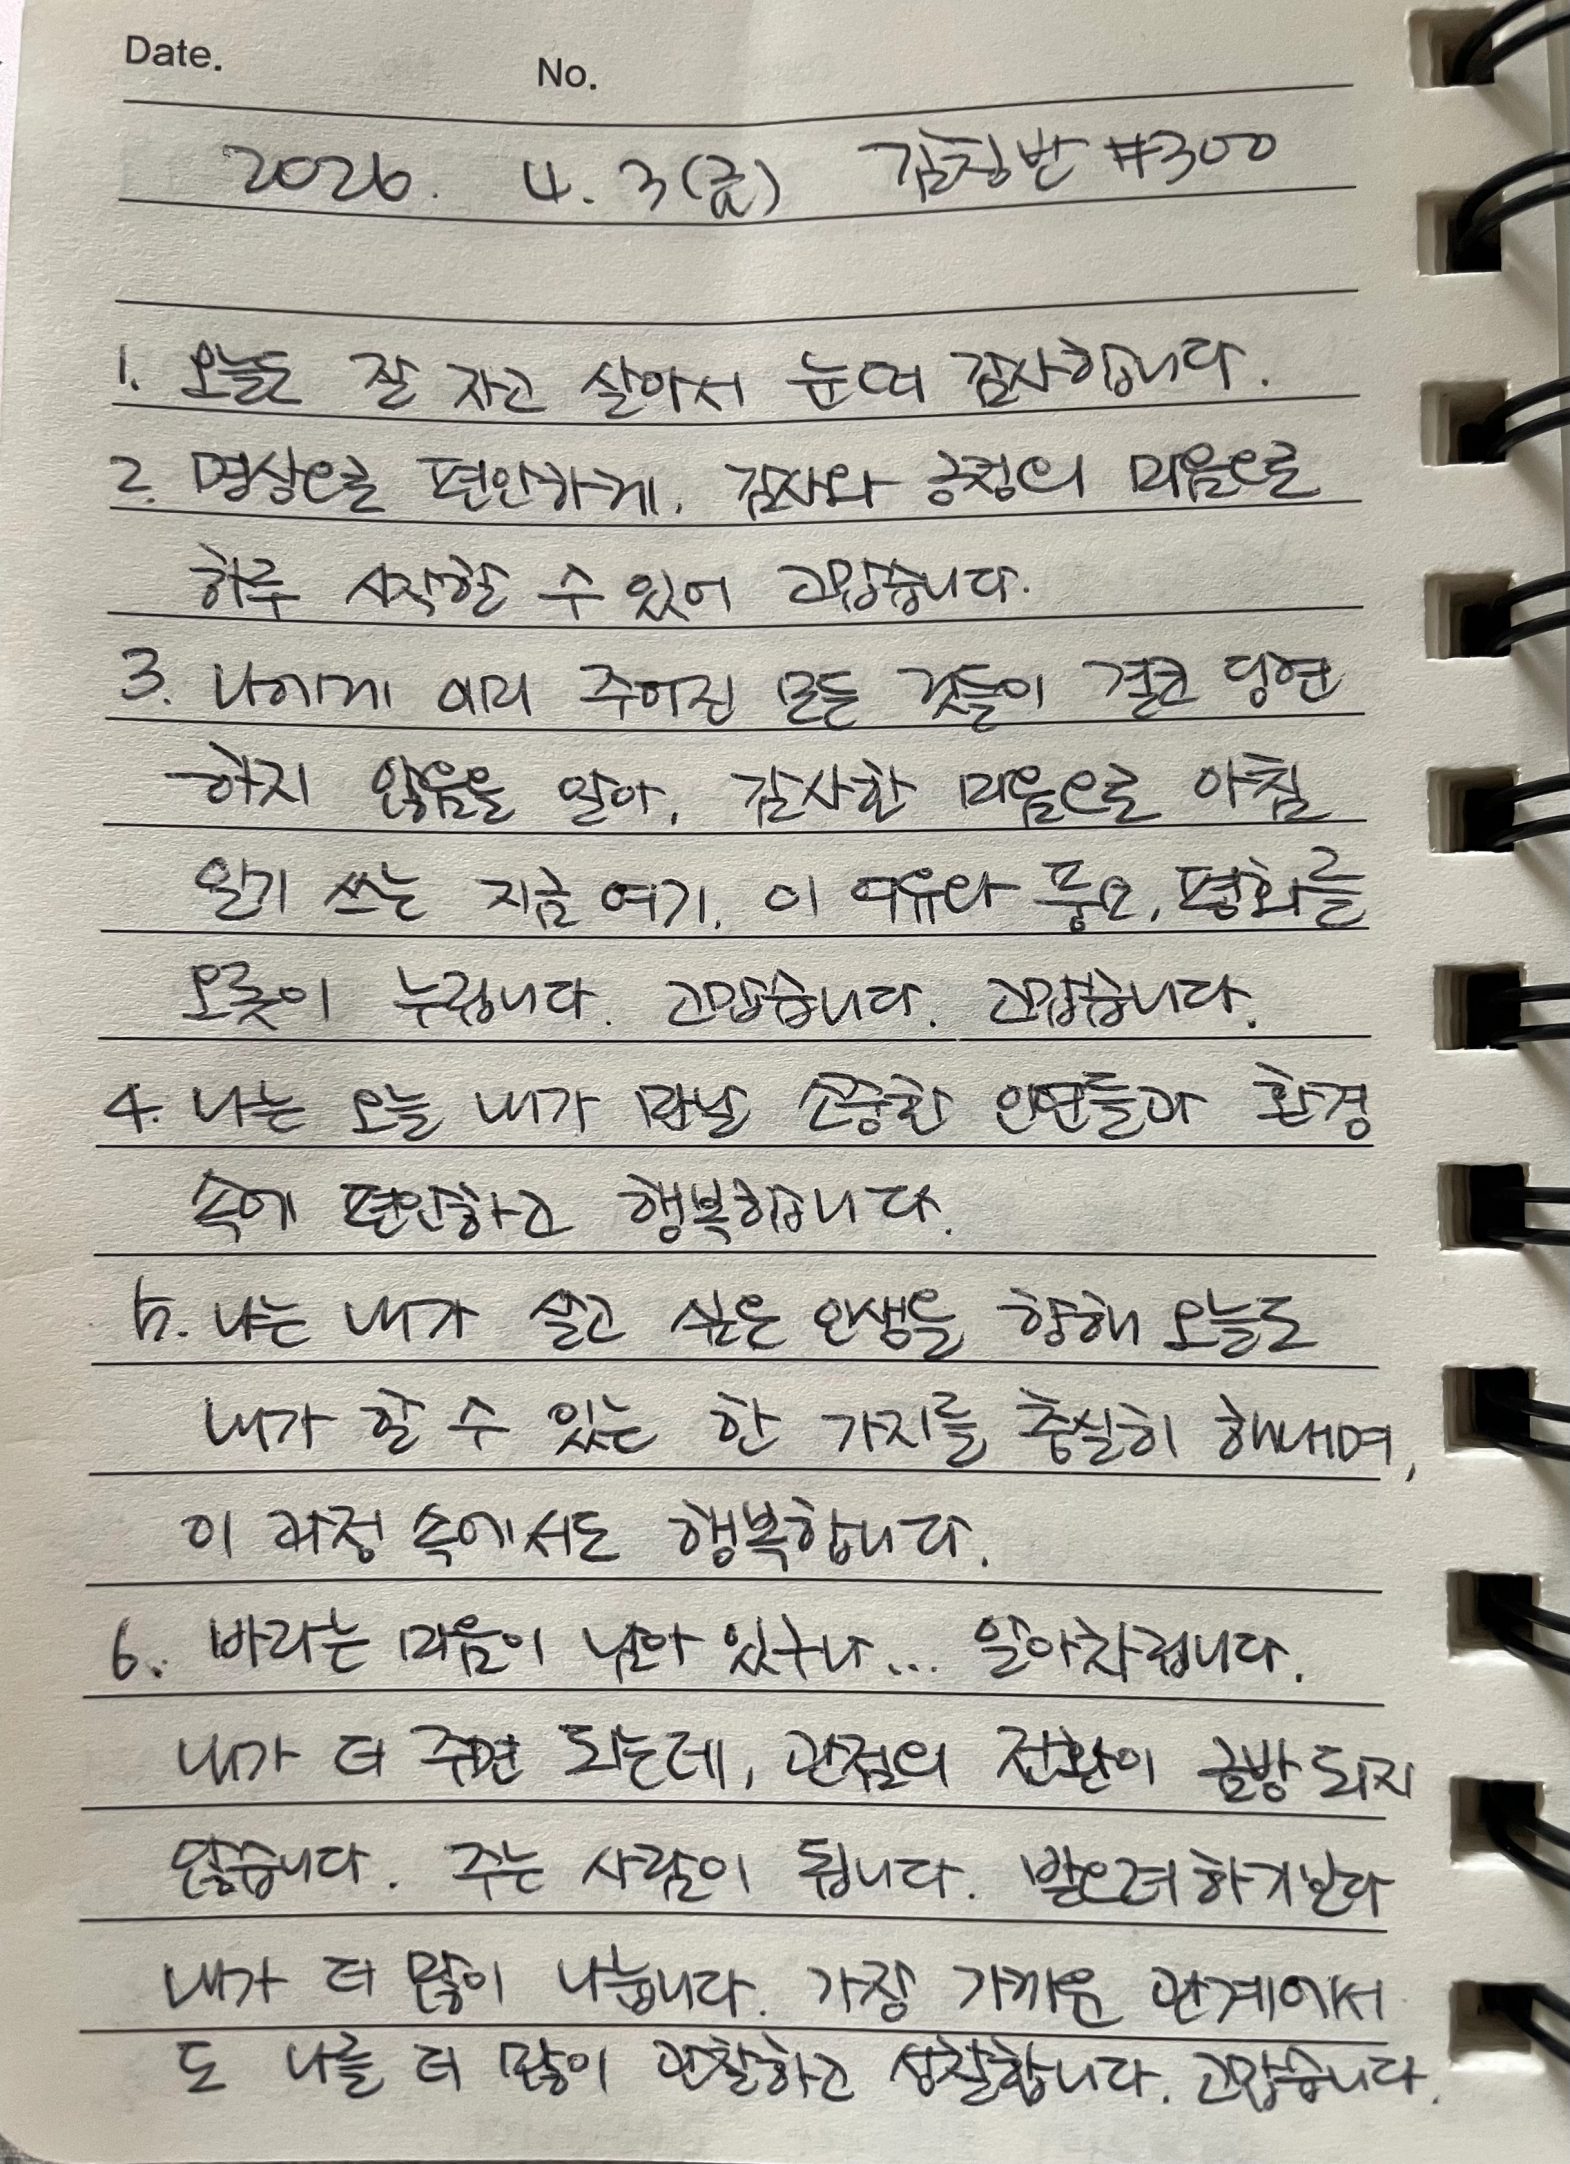 Date.
No.
2026. 4. 3(금) 감칭반 #300
1. 오늘도 잘 자고 살아서 눈떠 감사합니다.
2. 명상으로 편안하게, 감사와 긍정의 마음으로
하루 시작할 수 있어 고맙습니다.
3. 나에게 이미 주어진 모든 것들이 결코 당연
하지 않음을 알아, 감사한 마음으로 아침
일기 쓰는 지금 여기, 이 여유와 풍요, 평화를
오롯이 누립니다. 고맙습니다. 고맙습니다.
4. 나는 오늘 내가 만날 소중한 인연들과 환경
속에 편안하고 행복합니다.
5. 나는 내가 살고 싶은 인생을 향해 오늘도
내가 할 수 있는 한 가지를 충실히 해내며,
이 과정 속에서도 행복합니다.
6. 바라는 마음이 남아 있구나... 알아차립니다.
내가 더 주면 되는데, 관점의 전환이 금방 되지
않습니다. 주는 사람이 됩니다. 받으려하기보다
내가 더 많이 나눕니다. 가장 가까운 관계에서
도 나를 더 많이 관찰하고 성찰합니다. 고맙습니다.